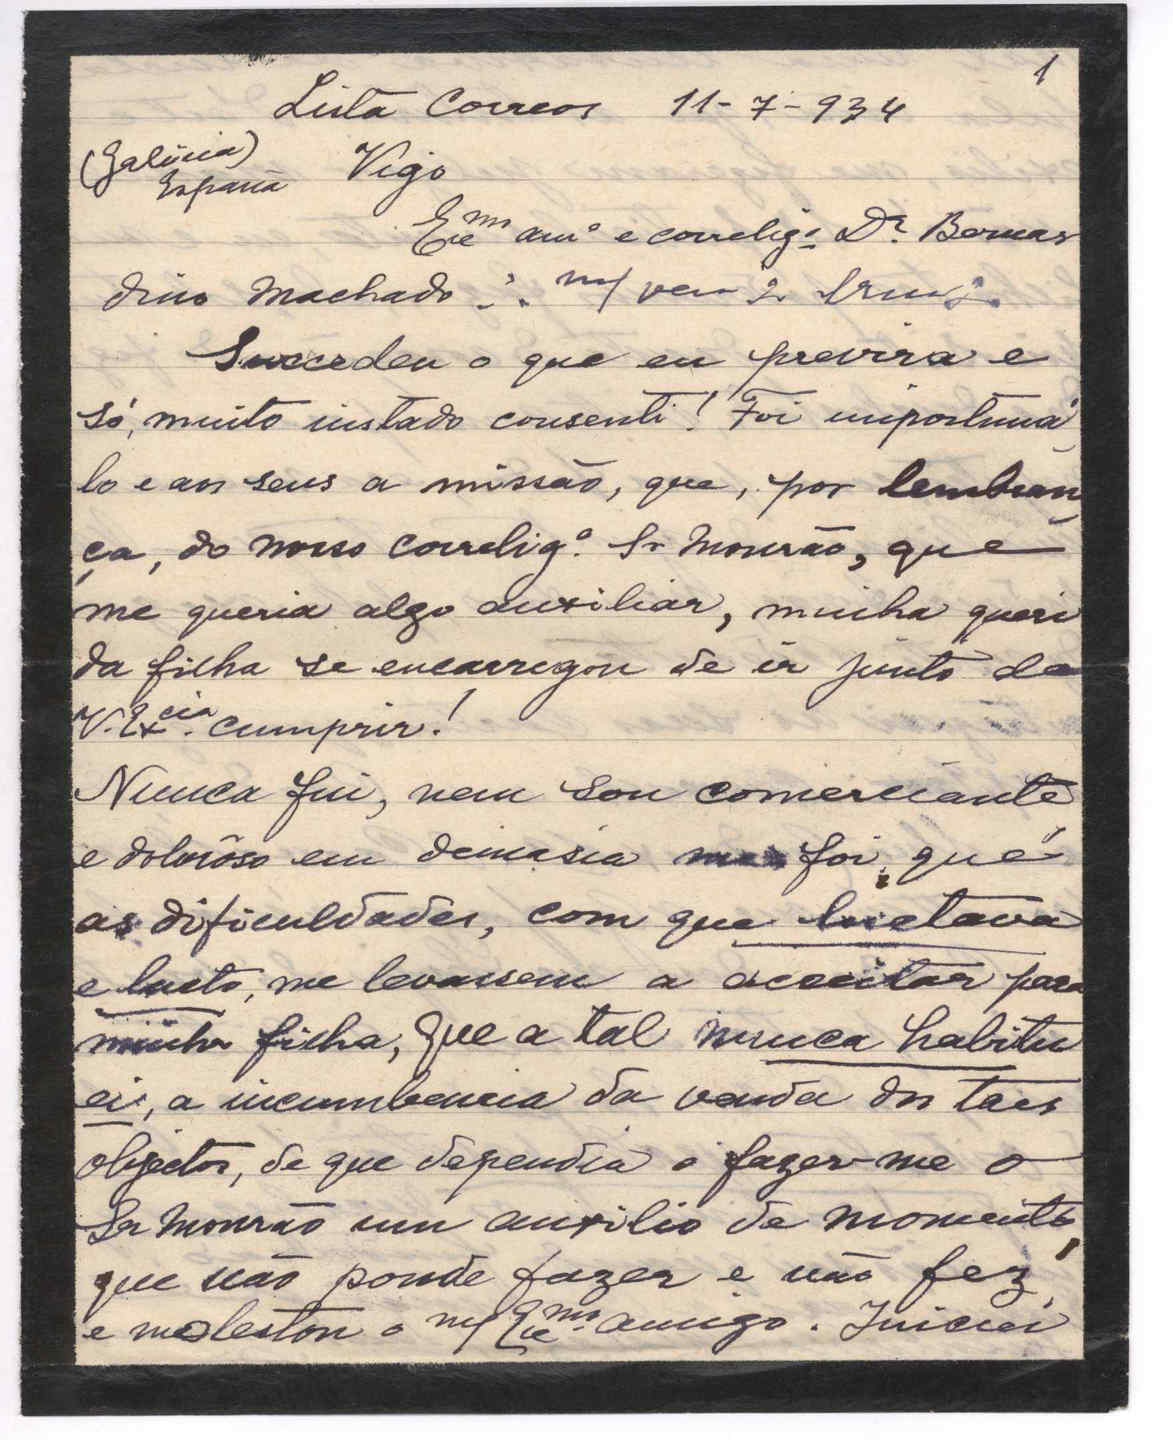 1
Lista Correos 11-7-934
(Galicia)
España
Vigo
Exmo amº e correligº Dr. Bernar
dino Machado ∴ m/ ven
Succedeu o que eu previra e
só, muito instado consenti! Foi importuná
lo e aos seus a missão, que, por lembran
ça, do nosso correligº. Sr Mourão, que
me queria algo auxiliar, minha queri
da filha se encarregou de ir junto de
V. Excia. cumprir!
Nunca fui, nem sou comerciante
e dolorôso em demasia foi, que
as dificuldades, com que luctava
e lucto, me levassem a aceeitar para
minha filha, que a tal nunca habitu
ei, a incumbencia da venda dos taes
objectos, de que dependia o fazer-me o
Sr Mourão um auxilio de momento,
que não poude fazer e não fez,
e molestou o m/ Exmo. amigo. Iniciei